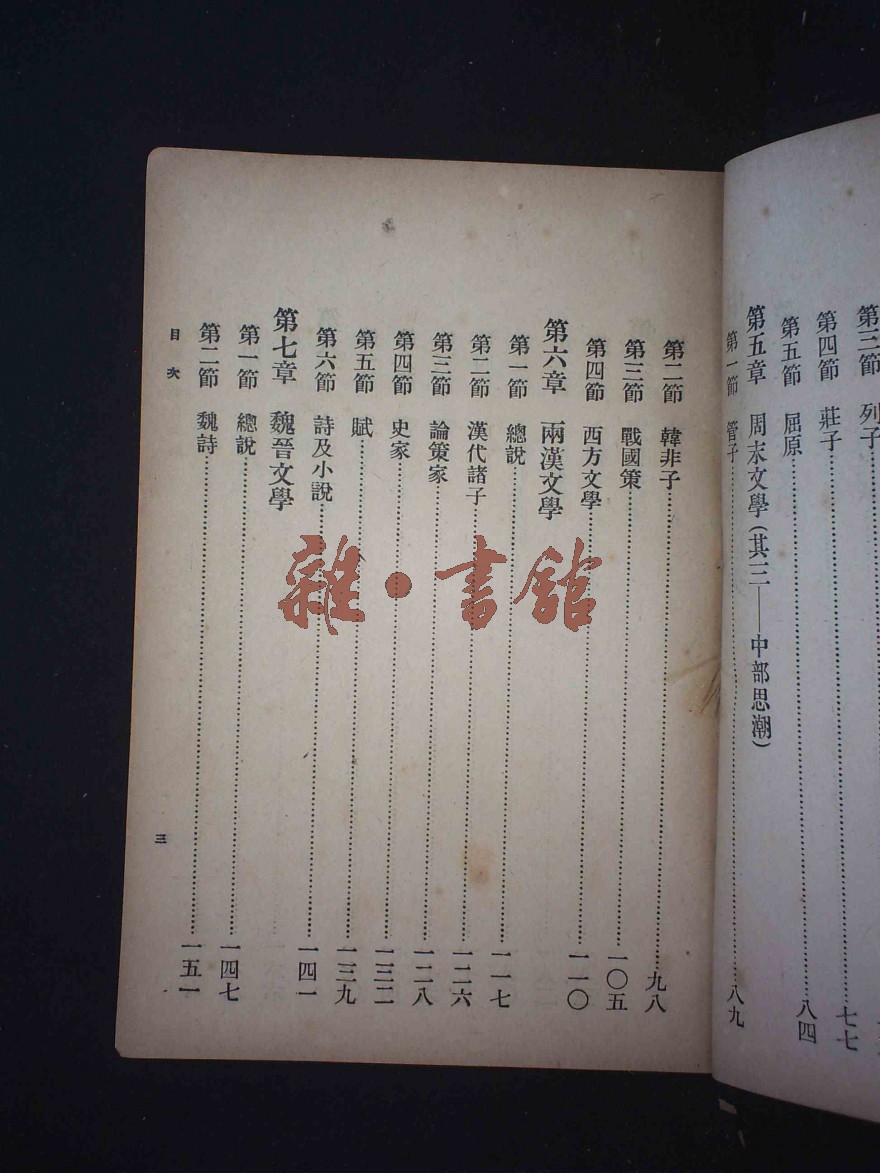 第三節 列子
第四節 莊子……七七
第五節 屈原……八四
第五章 周末文學(其三——中部思潮)
第一節 管子……八九
第二節 韓非子……九八
第三節 戰國策……一〇五
第四節 西方文學……一一〇
第六章 兩漢文學
第一節 總說……一一七
第二節 漢代諸子……一二六
第三節 論策家……一二八
第四節 史家……一三二
第五節 賦……一三九
第六節 詩及小說……一四一
第七章 魏晉文學
第一節 總說……一四七
第二節 魏詩……一五一
目次
三
雜·書館